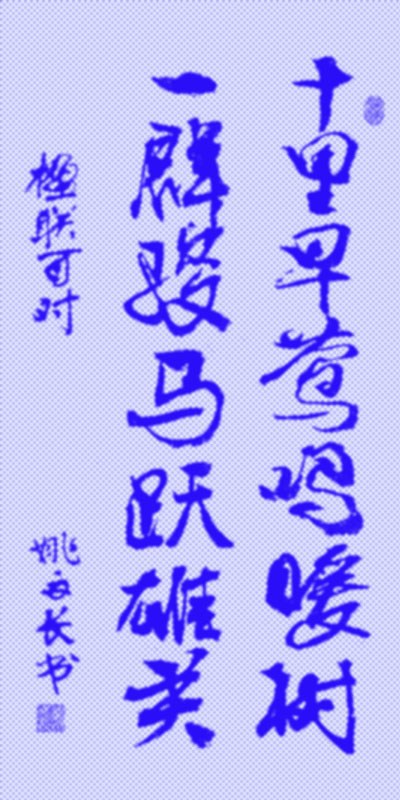 十里早莺鸣暖树
一群骏马跃雄关
楹联可对
姚文长书